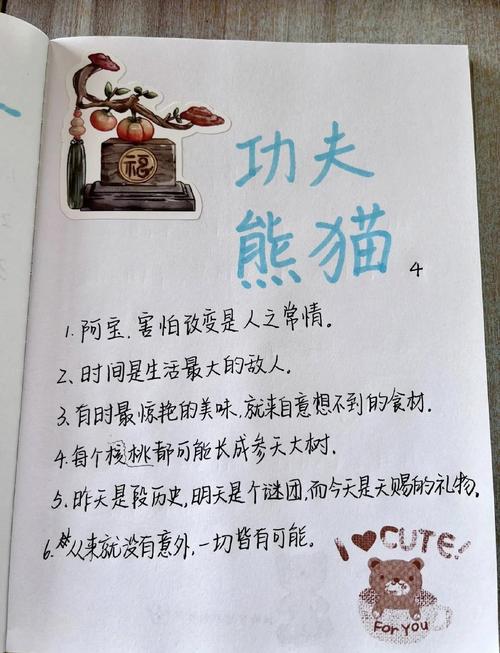 福
功夫
熊猫
4
1. 阿宝，害怕改变是人之常情。
2、时间是生活最大的敌人.
3. 有时最惊艳的美味，就来自意想不到的食材.
4. 每个核桃都可能长成参天大树.
5、昨天是段历史，明天是个谜团，而今天是天赐的礼物.
6. 从来就没有意外，一切皆有可能。
I ♥ CUTE!
For YOU